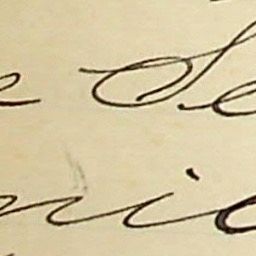 e Se
nic